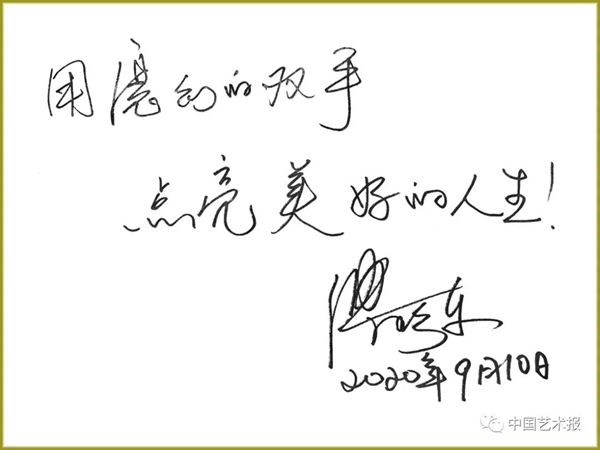 用魔幻的双手
点亮美好的人生！
2020年9月10日
中国艺术报